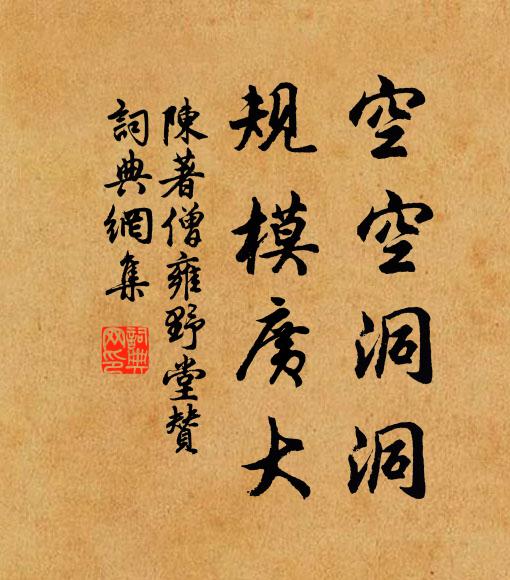 空空洞洞
規模廣大
陳著僧雍野堂贊
詞典網集
詞典網印